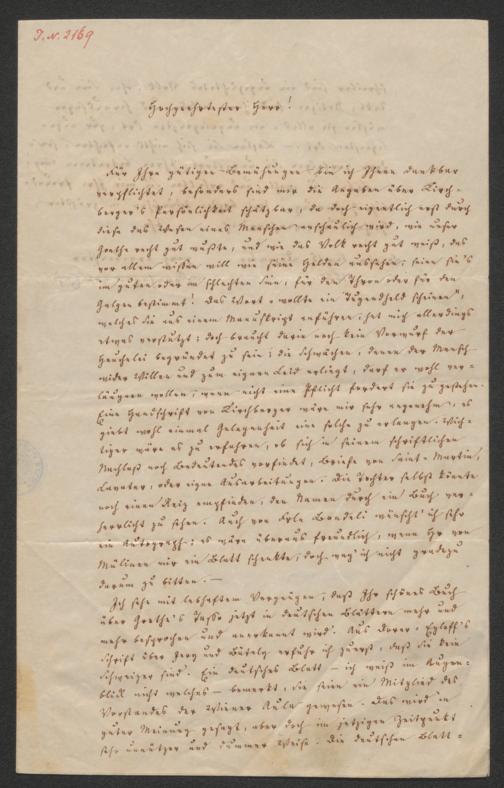 J. N. 2169
Hochgeehrtester Herr!
Für Ihre gütigen Bemühungen bin ich Ihnen dankbar
verpflichtet, besonders sind mir die Angaben über Kirch-
berger's Persönlichkeit schätzbar, da doch eigentlich erst durch
diese das Wesen eines Menschen anschaulich wird, wie unser
Goethe recht gut wußte, und wie das Volk recht gut weiß, das
vor allem wissen will wie seine Helden aussehen: seien sie's
im guten oder im schlechten Sinn, für den Thron oder für den
Galgen bestimmt! Das Wort „wollte ein Tugendheld scheinen",
welches Sie aus einem Manuskript anführen, hat mich allerdings
etwas verstutzt; doch braucht darin noch kein Vorwurf der
Heuchelei begründet zu sein; die Schwächen, denen der Mensch
wider Willen und zum eignen Leid erliegt, darf er wohl ver-
läugnen wollen, wenn nicht eine Pflicht fordert sie zu gestehen.
Eine Handschrift von Kirchberger wäre mir sehr angenehm, es
giebt wohl einmal Gelegenheit eine solche zu erlangen. Wich-
tiger wäre es zu erfahren, ob sich in seinem schriftlichen
Nachlaß noch Bedeutendes vorfindet, Briefe von Saint-Martin,
Lavater, oder eigne Ausarbeitungen. Die Tochter selbst könnte
noch einen Reiz empfinden, den Namen durch ein Buch ver-
herrlicht zu sehen. Auch von Bondeli wünscht' ich sehr
ein Autograph; es wäre überaus freundlich, wenn Hr von
Mülinen mir ein Blatt schenkte, doch wag' ich nicht geradezu
darum zu bitten. —
Ich sehe mit lebhaftem Vergnügen, daß Ihr schönes Buch
über Goethe's Tasso jetzt in deutschen Blättern mehr und
mehr besprochen und anerkannt wird. Aus Dorer-Egloff's
Schrift über Lenz und erfuhr ich zuerst, daß Sie kein
Schweizer sind. Ein deutsches Blatt — ich weiß im Augen-
blick nicht welches — bemerkt, Sie seien ein Mitglied des
Vorstandes der Wiener Aula gewesen. Das wird in
guter Meinung gesagt, aber doch im jetzigen Zeitpunkt
sehr unnützer und dummer Weise. Die deutschen Blätt-